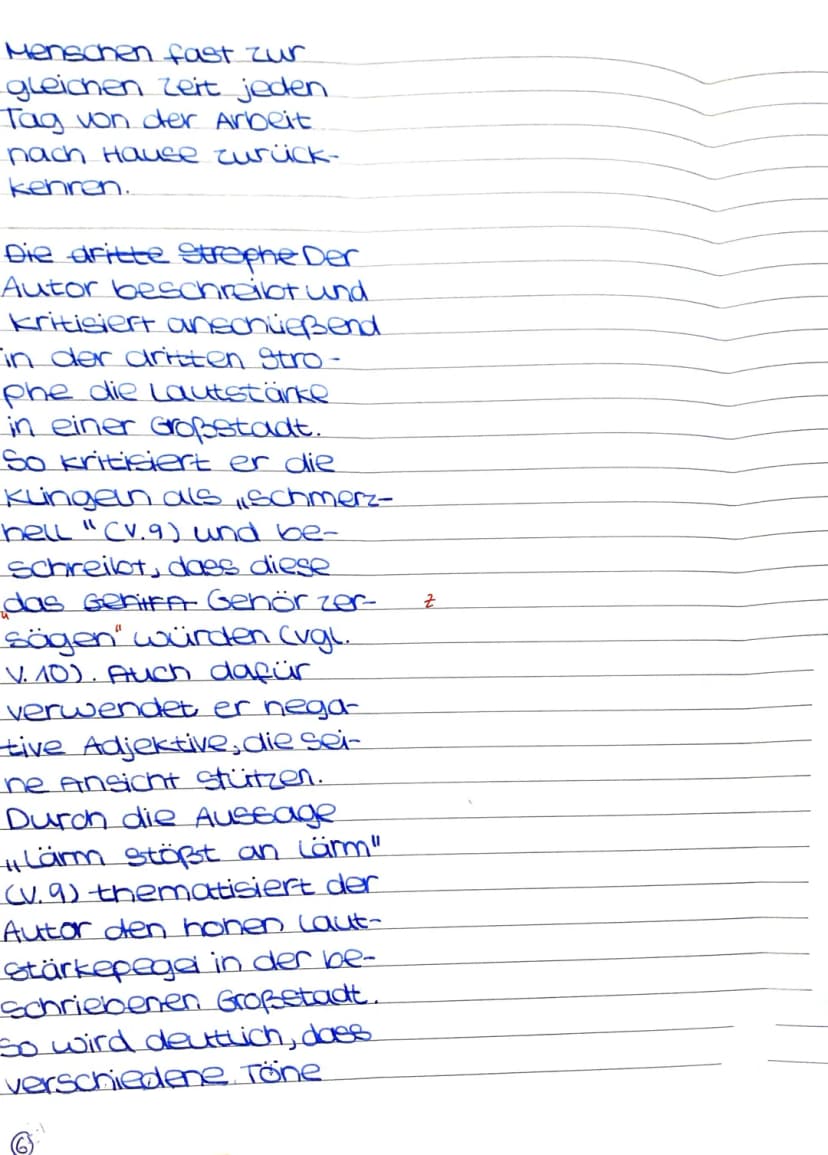 Menschen fast zur
gleichen Zeit jeden
Tag von der Arbeit
nach Hause zurück-
kehren.
Die dritte Strophe Der
Autor beschreibt und
kritisiert anschließend
in der dritten Stro-
phe die Lautstärke
in einer Großstadt.
So kritisiert er die
Klingeln als „schmerz-
hell" (V.9) und be-
schreibt, dass diese
„das Gehör zer- z
sägen" würden (vgl.
V. 10). Auch dafür
verwendet er nega-
tive Adjektive, die sei-
ne Ansicht stützen.
Durch die Aussage
„Lärm stößt an Lärm"
(V.9) thematisiert der
Autor den hohen Laut-
stärkepegel in der be-
schriebenen Großstadt.
So wird deutlich, dass
verschiedene Töne
6